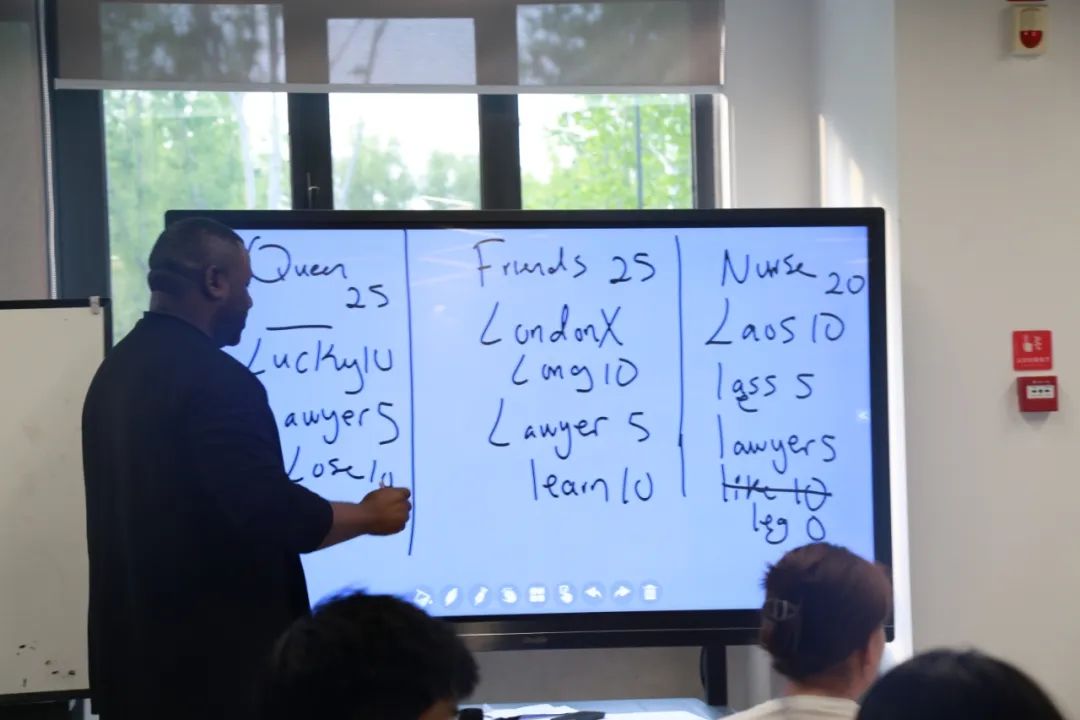 Queen
25
Lucky 10
Lawyer 5
Lose 10
Friends 25
London X
Long 10
Lawyer 5
learn 10
Nurse 20
Laos 10
lass 5
lawyer 5
like 10
leg 0